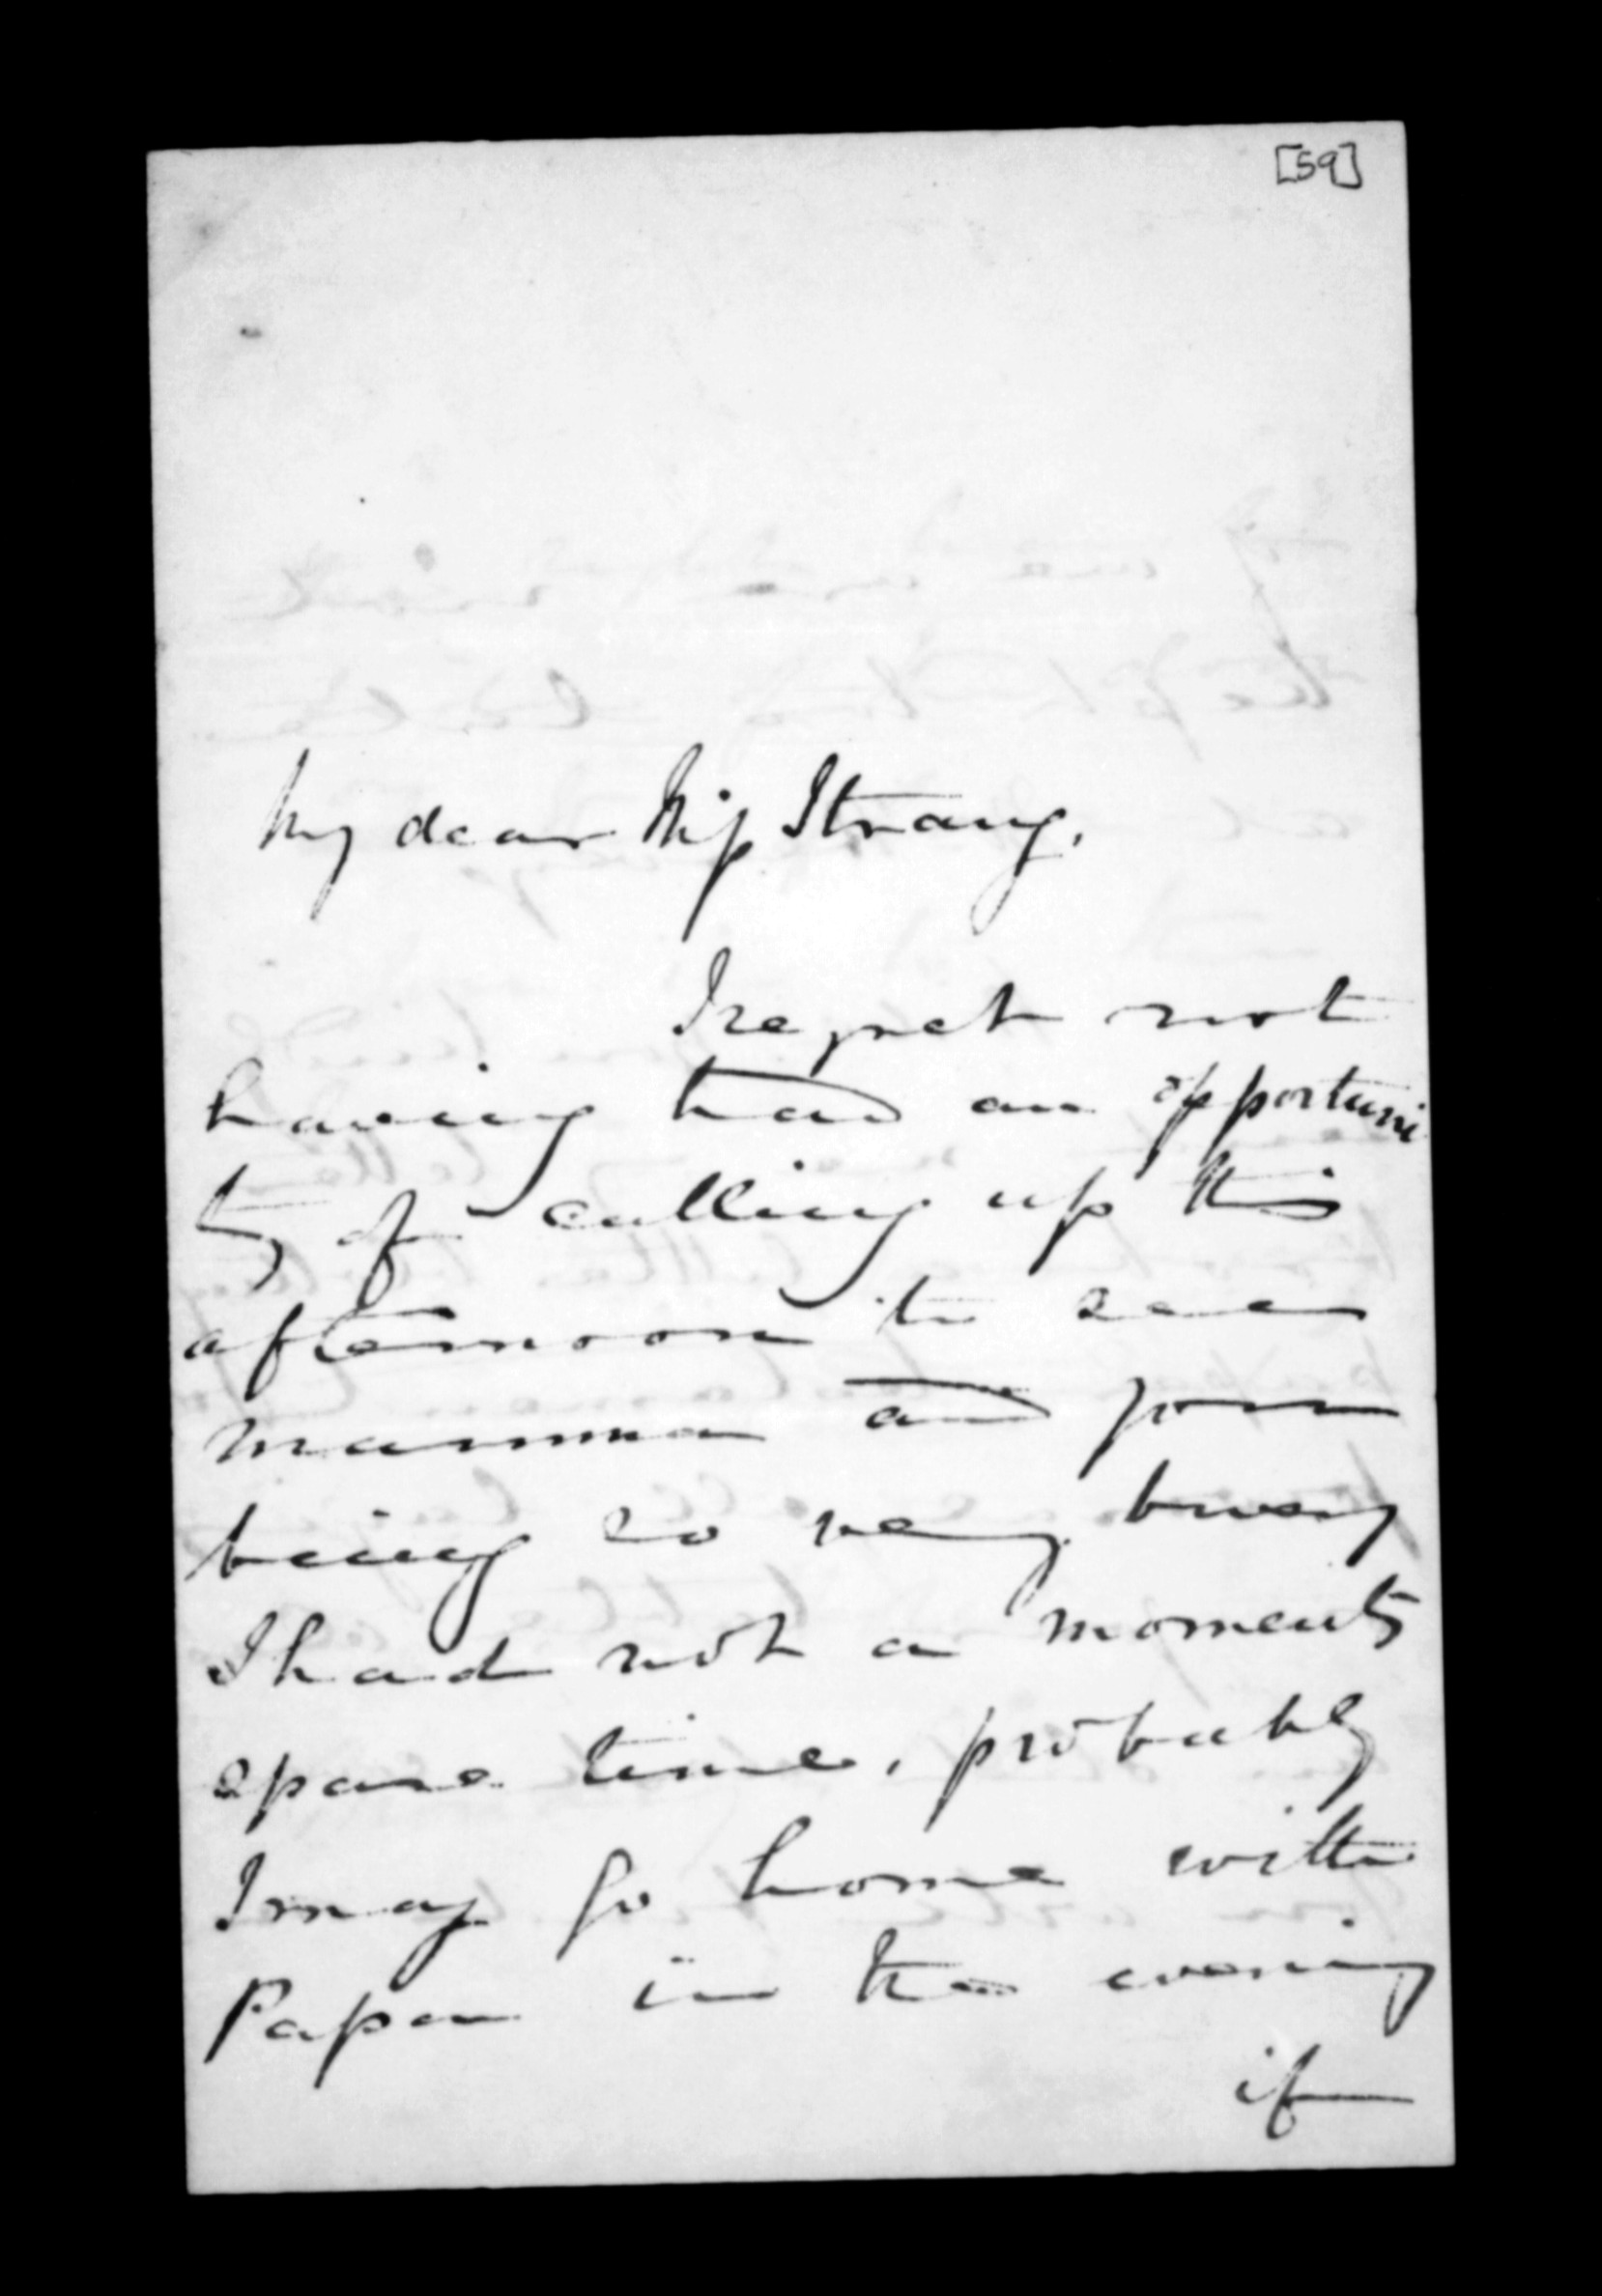 [59]
My dear Miss Strang,
I regret not
having had an opportuni
ty of calling up this
afternoon to see
mamma and you
being so very busy
I had not a moments
spare time, probably
I may go home with
Papa in the evening
if